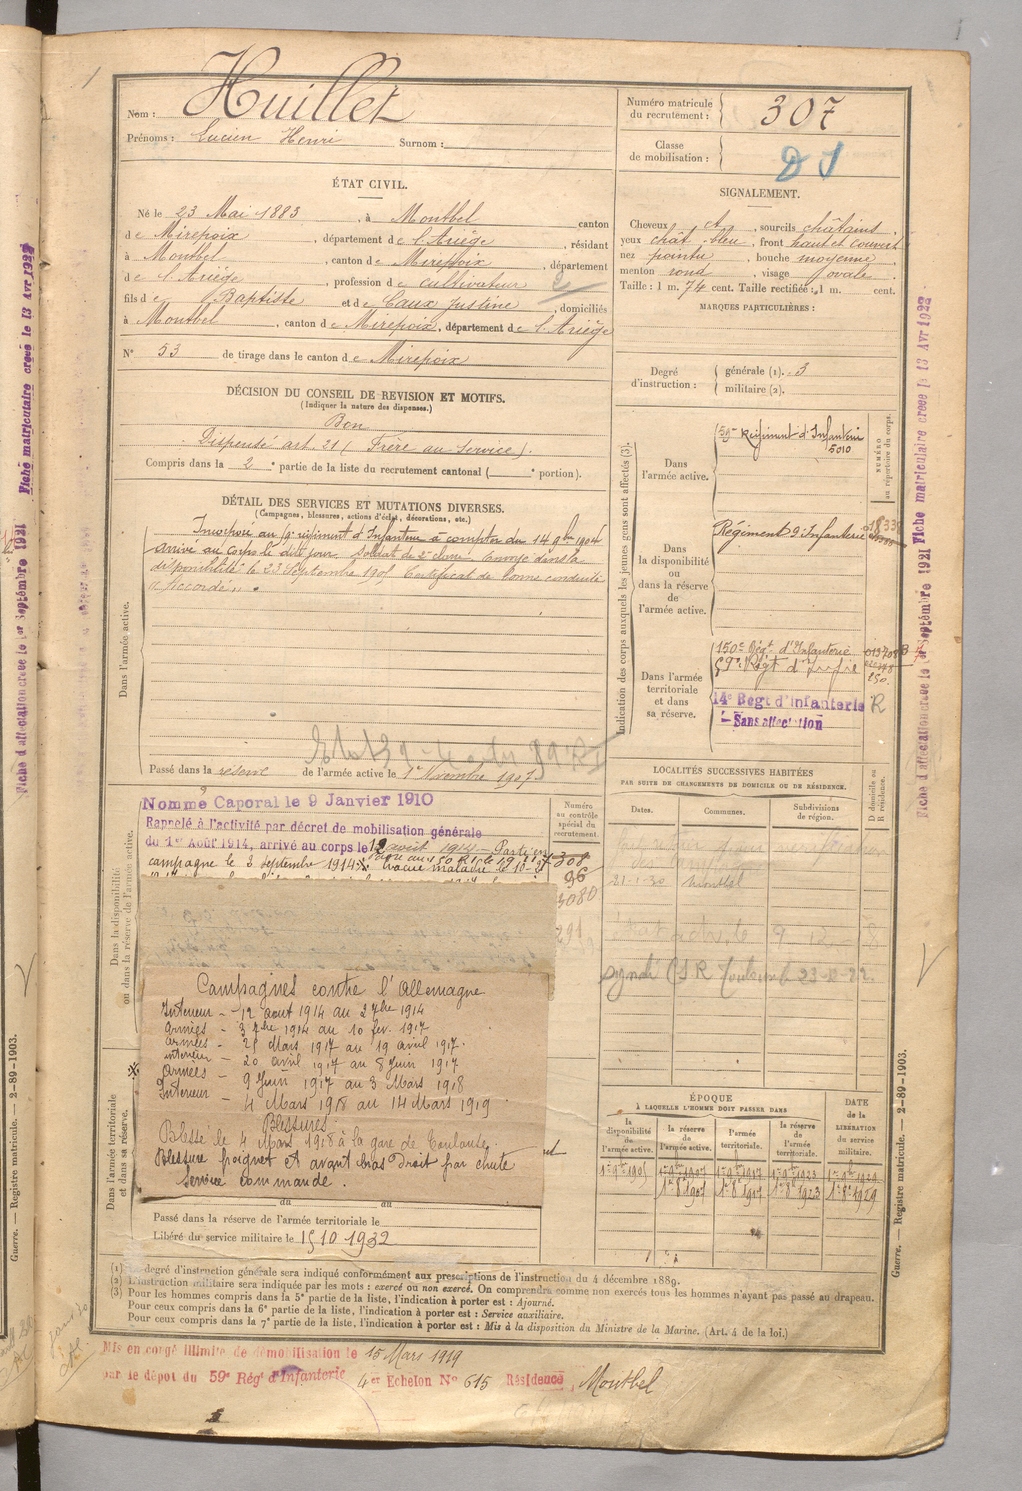 Nom : Huillet
Prénoms : Lucien Henri Surnom :
Numéro matricule
du recrutement : 307
Classe
de mobilisation :
ÉTAT CIVIL.
Né le 23 Mai 1883, à Montbel canton
de Mirepoix, département de l'Ariège, résidant
à Montbel, canton de Mirepoix, département
de l'Ariège, profession de cultivateur
fils de Baptiste et de Caux Justine, domiciliés
à Montbel, canton de Mirepoix, département de l'Ariège
N° 53 de tirage dans le canton de Mirepoix
SIGNALEMENT.
Cheveux et, sourcils châtains,
yeux chât bleu, front haut et couvert
nez pointu, bouche moyenne
menton rond, visage ovale.
Taille : 1 m. 74 cent. Taille rectifiée : 1 m. cent.
MARQUES PARTICULIÈRES :
Degré
d'instruction :
générale (1). 3
militaire (2).
DÉCISION DU CONSEIL DE REVISION ET MOTIFS.
(Indiquer la nature des dispenses.)
Bon
Dispensé art. 21 (Frère au Service).
Compris dans la 2e partie de la liste du recrutement cantonal ( e portion).
DÉTAIL DES SERVICES ET MUTATIONS DIVERSES.
(Campagnes, blessures, actions d'éclat, décorations, etc.)
Dans l'armée active.
Incorporé au régiment d'Infanterie à compter du 14 9bre 1904
arrivé au corps le dit jour. Soldat de 2e classe. Envoyé dans la
disponibilité le 23 Septembre 1905 Certificat de bonne conduite
"Accordé".
Passé dans la réserve de l'armée active le 1er Novembre 1907
Indication des corps auxquels les jeunes gens sont affectés (3).
NUMÉRO
au répertoire du corps.
Dans
l'armée active.
59e Régiment d'Infanterie
5010
Dans
la disponibilité
ou
dans la réserve
de
l'armée active.
Régiment d'Infanterie
Dans l'armée
territoriale
et dans
sa réserve.
150e Régt d'Infanterie
59e Régt d'Infie
14e Régt d'Infanterie R
Sans affectation
Dans la disponibilité
ou dans la réserve de l'armée active.
Nommé Caporal le 9 Janvier 1910
Rappelé à l'activité par décret de mobilisation générale
du 1er Août 1914, arrivé au corps le 12 août 1914 - Parti en
campagne le 3 Septembre 1914
Numéro
au contrôle
spécial du
recrutement.
308
96
3080
291
LOCALITÉS SUCCESSIVES HABITÉES
PAR SUITE DE CHANGEMENTS DE DOMICILE OU DE RÉSIDENCE.
Dates. Communes. Subdivisions
de région.
D domicile ou
R résidence.
21-1-30 Montbel
Campagnes contre l'Allemagne
Intérieur - 12 aout 1914 au 2 7bre 1914
Armées - 3 7bre 1914 au 10 fev. 1917
Armées - 25 Mars 1917 au 19 avril 1917.
intérieur - 20 avril 1917 au 8 Juin 1917
Armées - 9 Juin 1917 au 3 Mars 1918
Intérieur - 4 Mars 1918 au 14 Mars 1919
Blessures
Blessé le 4 Mars 1918 à la gare de Toulouse.
Blessure poignet et avant bras droit par chute
Service commandé.
Dans l'armée territoriale
et dans sa réserve.
du au
Passé dans la réserve de l'armée territoriale le
Libéré du service militaire le 15 10 1932
ÉPOQUE
À LAQUELLE L'HOMME DOIT PASSER DANS
la
disponibilité
de
l'armée active.
la
réserve de
l'armée active.
l'armée
territoriale.
la
réserve de
l'armée
territoriale.
DATE
de la
LIBÉRATION
du service
militaire.
1er 9bre 1905 1er 9bre 1907 1er 9bre 1917 1er 9bre 1923 1er 9bre 1929
1er 8e 1907 1er 8e 1917 1er 8e 1923 1er 8e 1929
(1) Le degré d'instruction générale sera indiqué conformément aux prescriptions de l'instruction du 4 décembre 1889.
(2) L'instruction militaire sera indiquée par les mots : exercé ou non exercé. On comprendra comme non exercés tous les hommes n'ayant pas passé au drapeau.
(3) Pour les hommes compris dans la 5e partie de la liste, l'indication à porter est : Ajourné.
Pour ceux compris dans la 6e partie de la liste, l'indication à porter est : Service auxiliaire.
Pour ceux compris dans la 7e partie de la liste, l'indication à porter est : Mis à la disposition du Ministre de la Marine. (Art. 4 de la loi.)
Mis en congé illimité de démobilisation le 15 Mars 1919
par le dépôt du 59e Régt d'Infanterie 4er Echelon N° 615 Résidence Montbel
Fiche matriculaire créée le 13 Avr 1922
Fiche d'affectation créée le 1er Septembre 1921
Fiche matriculaire créée le 13 Avr 1922
Fiche d'affectation créée le 1er Septembre 1921
Guerre. — Registre matricule. — 2-89-1903.
Guerre. — Registre matricule. — 2-89-1903.